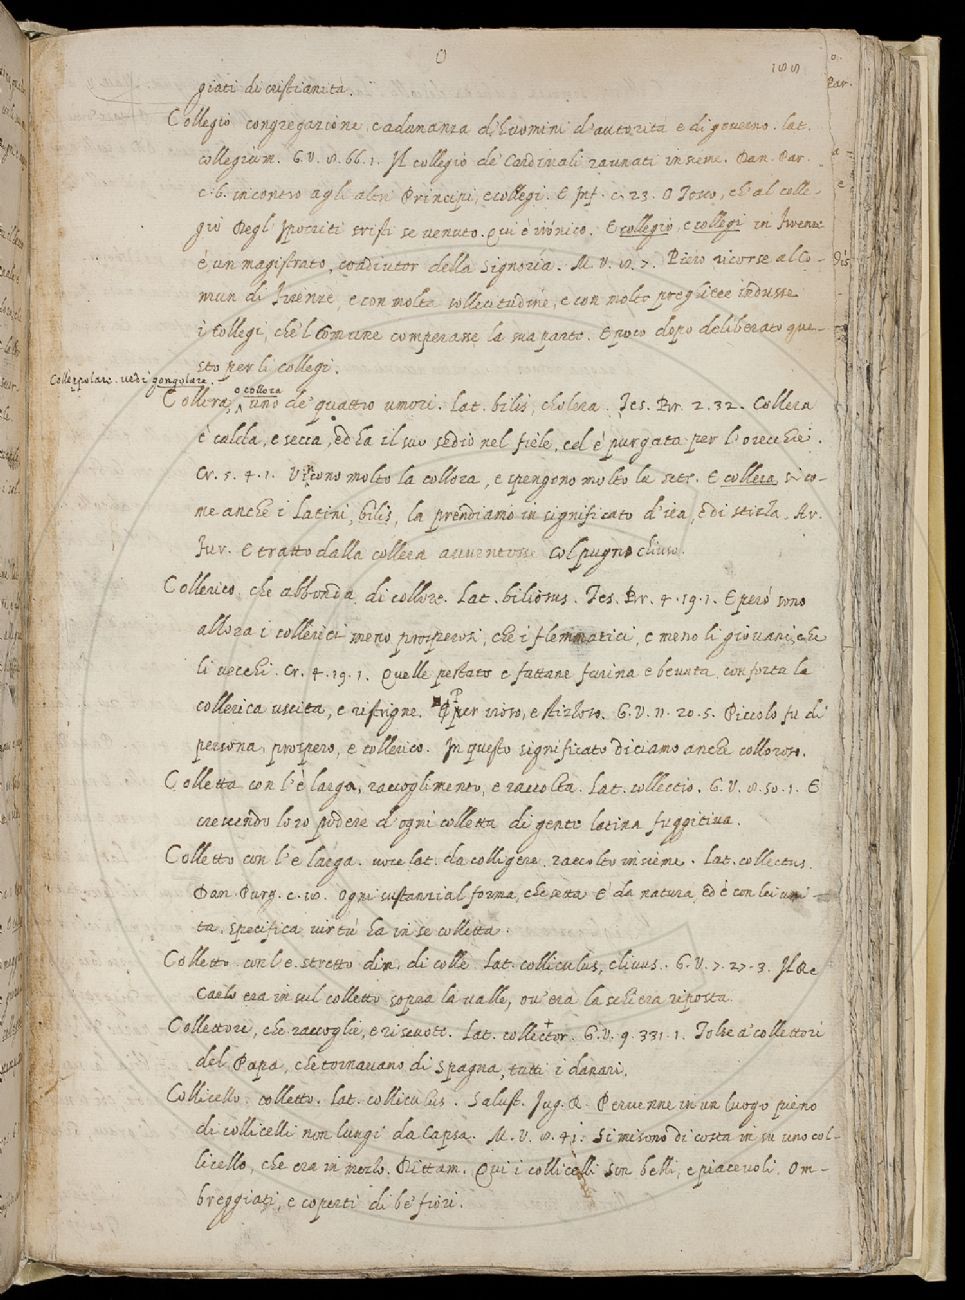 O
188
giati di cristianità.
Collegio congregazione, e adunanza d'huomini d'autorità e di governo. lat.
collegium. G. V. 8. 66. 1. Il collegio de' Cardinali raunati insieme. Dan. Par.
c. 6. incontro agli altri Principi, e collegi. E Inf. c. 23. O Tosco, ch'al colle-
gio Degl' Ipocriti tristi se venuto. Qui è irónico. E collegio, e collegi in Firenze
è un magistrato, coadiutor della Signoria. M. V. 8. 7. Piero ricorse al Co-
mun di Firenze, e con molta sollecitudine, e con molte preghiere indusse
i Collegi, che'l Comune comperasse la sua parte. E poco dopo deliberato que-
sto per li collegi.
Colleppolare. vedi gongolare.
o collora
Collera, uno de' quattro umori. Lat. bilis, cholera. Tes. Br. 2. 32. Collera
è calda, e secca, ed ha il suo sedio nel fiele, ed è purgata per l'orecchie.
Cr. 5. 4. 1. Vicono molto la collora, e spengono molto la sete. E collera si co-
me anche i Latini, bilis, la prendiamo in significato d'ira, e di stizza. Ar.
Fur. E tratto dalla collera avventosse Col pugno chiuso.
Collerico, che abbonda di collore. Lat. biliosus. Tes. Br. 4. 19. 1. E però sono
allora i collerici meno prosperosi, che i flemmatici, e meno li giovani, che
li vecchi. Cr. 4. 19. 1. Quelle pestate e fattane farina e bevuta, conforta la
collerica uscita, e ristrigne. P per iroso, e stizzoso. G. V. 11. 20. 5. Piccolo fu di
persona, prospero, e collerico. In questo significato diciamo anche colloroso.
Colletta con l'è larga, raccoglimento, e raccolta. Lat. collectio. G. V. 8. 50. 1. E
crescendo loro podere d'ogni colletta di gente latina fuggitiva.
Colletto con l'e larga. voce lat. da colligere. raccolto insieme. Lat. collectus.
Dan. Purg. c. 18. Ogni sustanzial forma, che setta È da natura, ed è con lei uni-
ta, Specifica virtù ha in se colletta.
Colletto con l'e stretto dim. di colle Lat. colliculus, clivus. G. V. 7. 27. 3. Il Re
Carlo era in sul colletto sopra la valle, ov'era la schiera riposta.
Collettore, che raccoglie, e riscuote. Lat. collector. G. V. 9. 331. 1. Tolse a' collettori
del Papa, che tornavano di Spagna, tutti i danari.
Collicello. colletto. Lat. colliculus. Salust. Jug. R. Pervenne in un luogo pieno
di collicelli non lungi da Capsa. M. V. 8. 41. Si misono di costa in su uno col-
licello, che era in merlo. Rittam. Qui i collicelli son belli, e piacevoli, Om-
breggiati, e coperti di be' fiori.